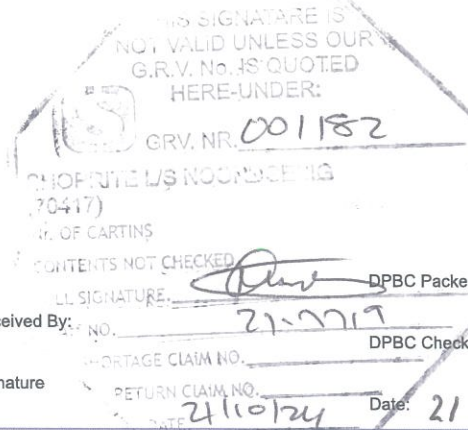 SIGNATARE IS
NOT VALID UNLESS OUR
G.R.V. No. IS QUOTED
HERE-UNDER:
GRV. NR. 001182
L/S
70417)
OF CARTINS
CONTENTS NOT CHECKED
LL SIGNATURE.
DPBC Packe
eived By:
NO.
DPBC Check
ORTAGE CLAIM NO.
nature
RETURN CLAIM NO.
DATE 21/10/24
Date: 21